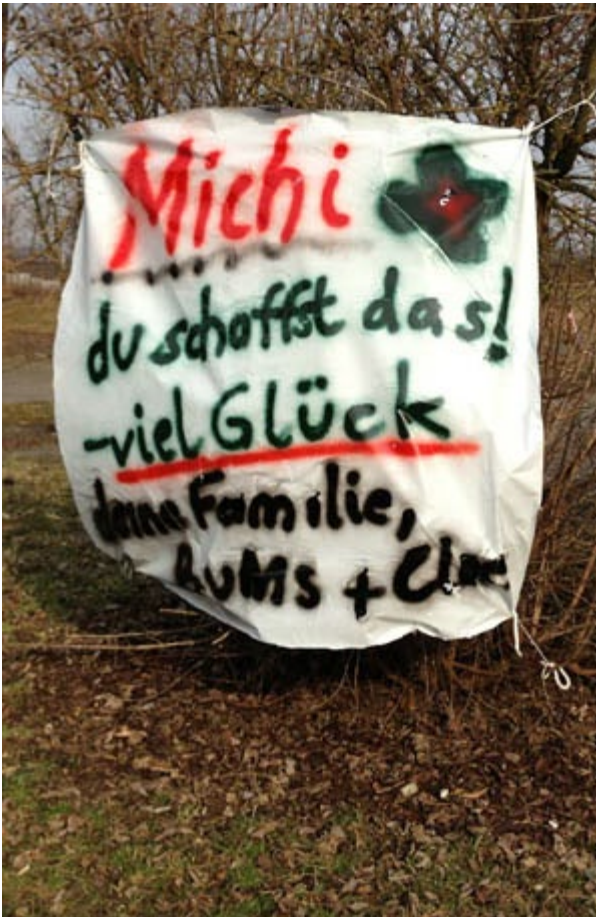 Michi
du schaffst das!
-viel Glück
deine Familie,
BuMs +